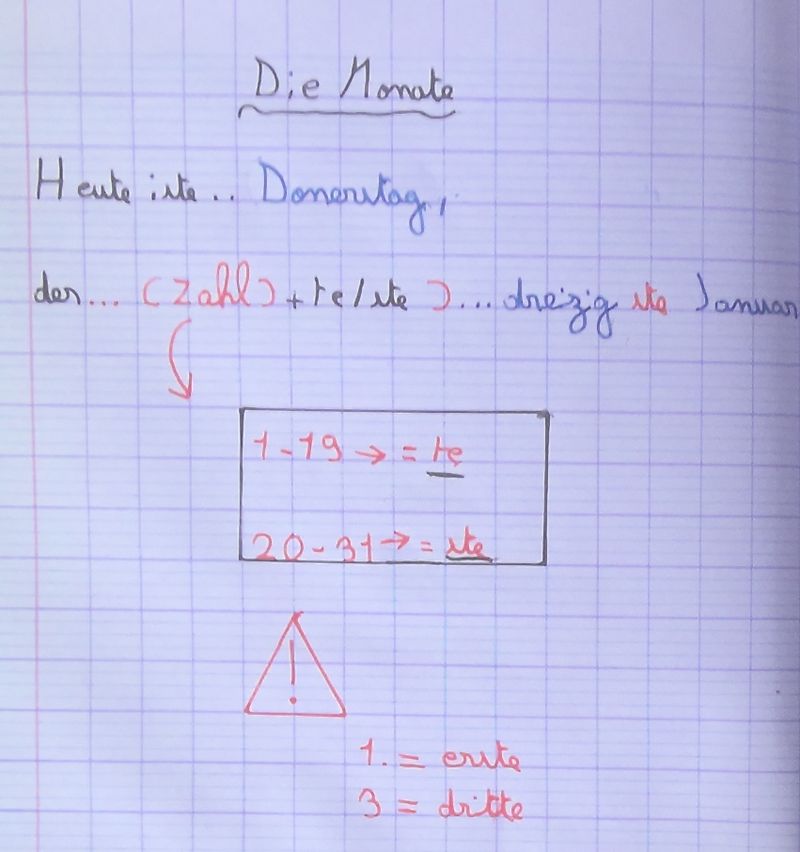 Die Monate
Heute iste.. Donerstag,
der... (Zahl) + te/ste )... dreizig ste Januar
1-19 → = te
20-31 → = ste
!
1. = erste
3 = dritte